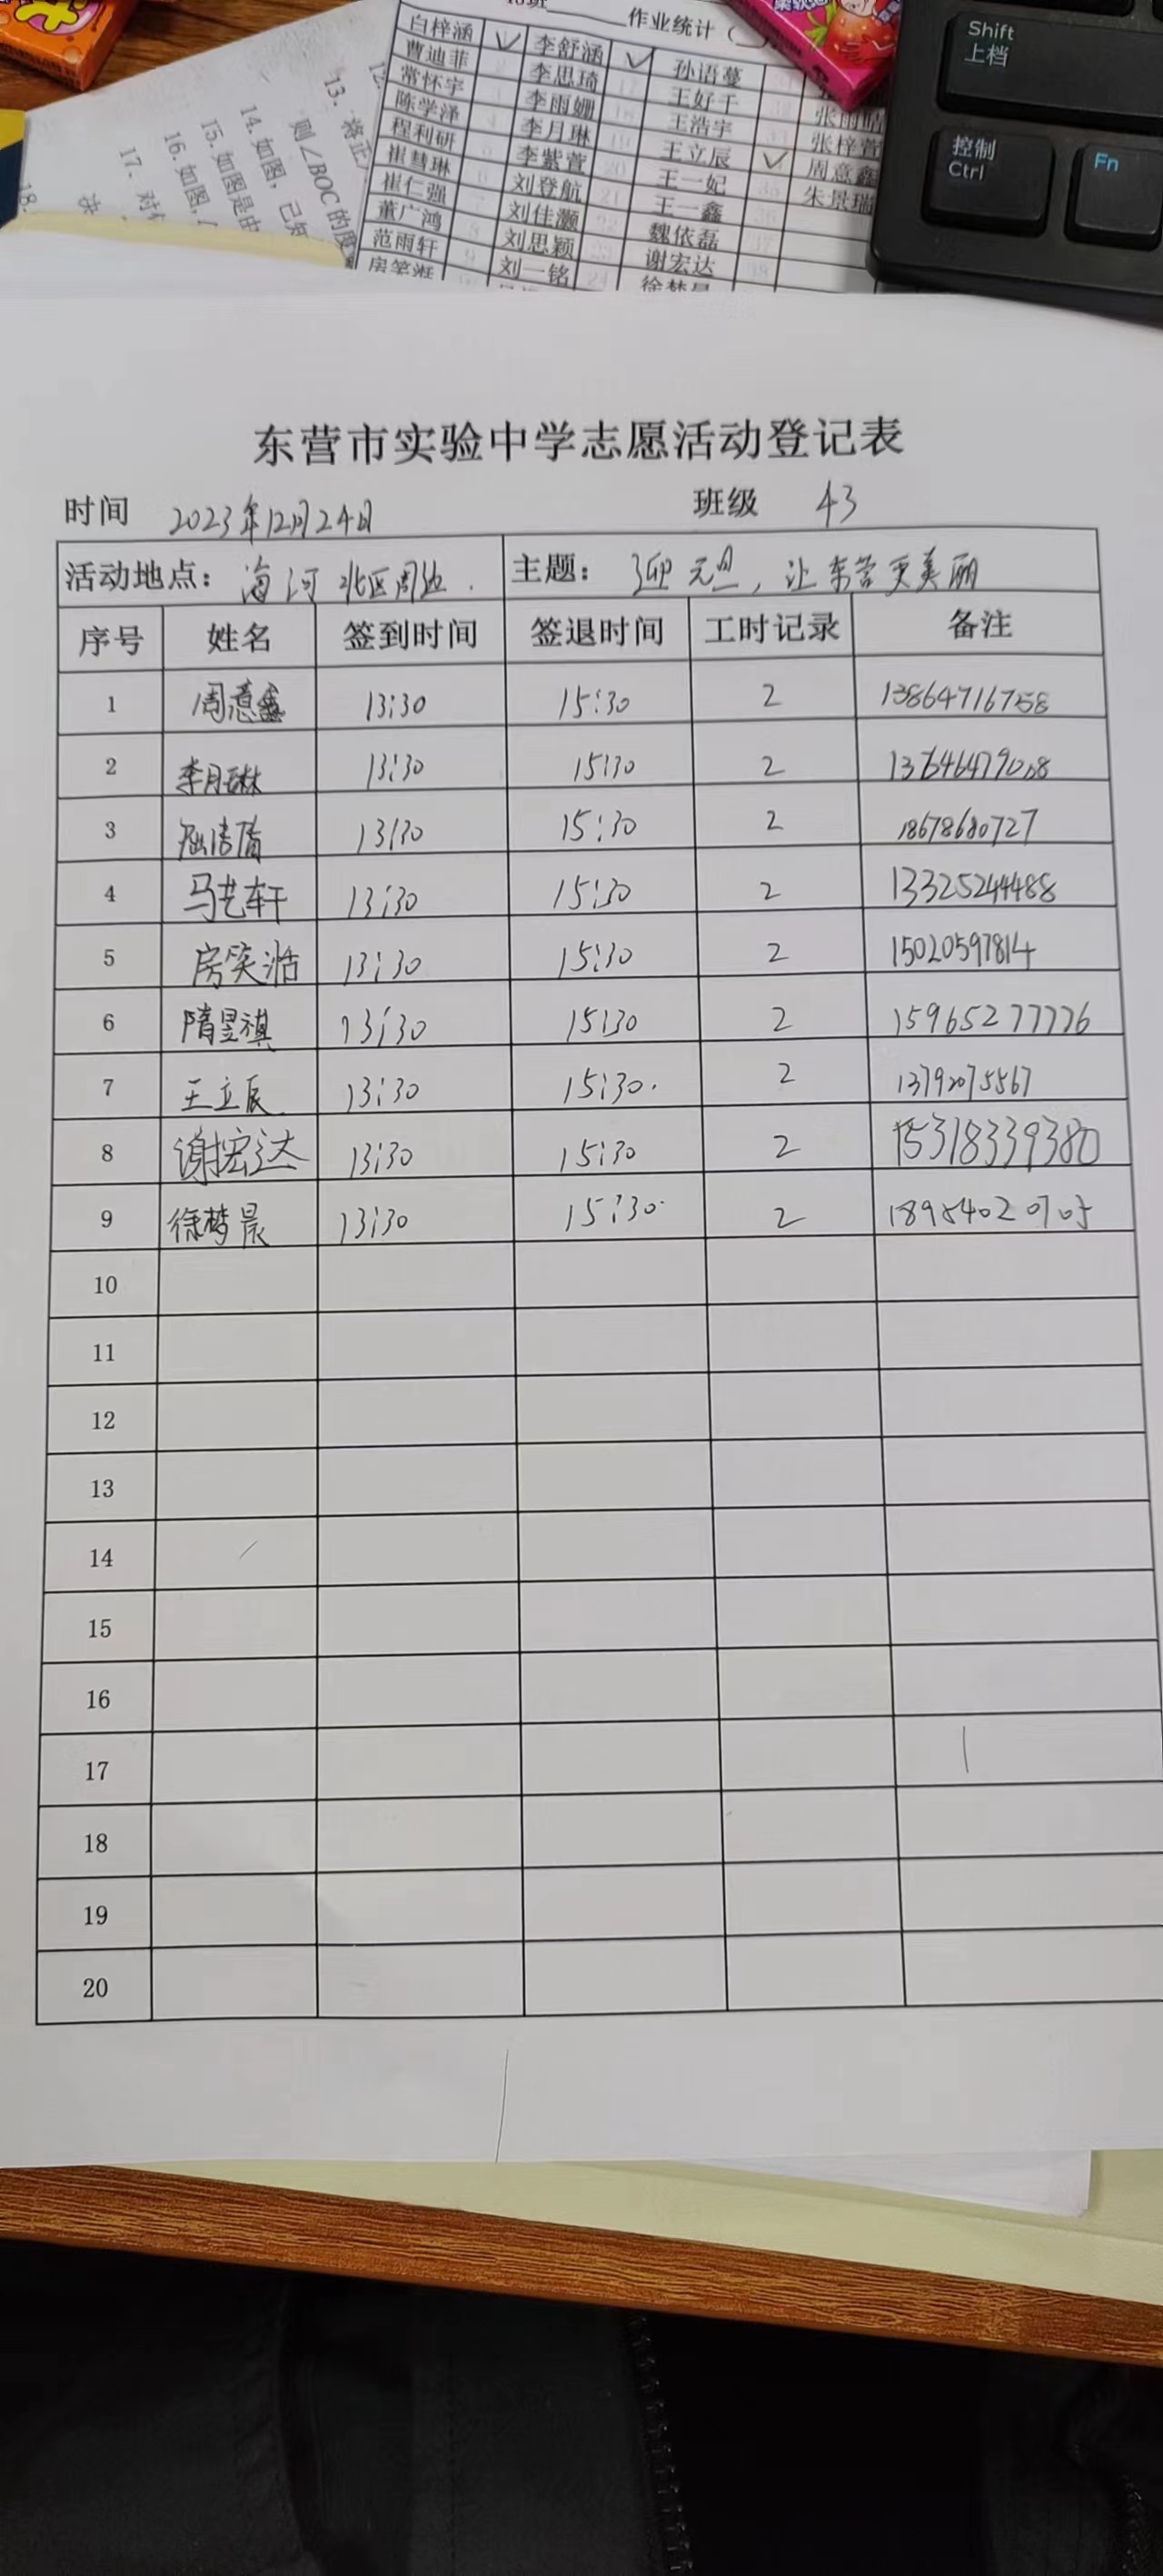 作业统计（
白梓涵 ✓ 李舒涵 ✓ 孙语蔓
曹迪菲 李思琦 王好千
常怀宇 李雨姗 王浩宇
陈学泽 李月琳 王立辰 ✓ 张梓萱
程利研 李紫萱 王一妃 周意鑫
崔慧琳 刘登航 王一鑫 朱景瑞
崔仁强 刘佳灏 魏依磊
董广鸿 刘思颖 谢宏达
范雨轩 刘一铭
13、将正
则∠BOC的度
14.如图，已知
15.如图是由
16.如图，
17、对
18.
Shift
上档
控制
Ctrl
Fn
东营市实验中学志愿活动登记表
时间 2023年12月24日 班级 43
活动地点：海河北区周边. 主题：迎元旦，让东营更美丽
序号 姓名 签到时间 签退时间 工时记录 备注
1 周意鑫 13:30 15:30 2 13864716758
2 李月琳 13:30 15:30 2
3 13:30 15:30 2 18678680727
4 马艺轩 13:30 15:30 2 13325244488
5 房笑湉 13:30 15:30 2 15020597814
6 隋昱祺 13:30 15:30 2 15965277776
7 王立辰 13:30 15:30. 2 13792075567
8 谢宏达 13:30 15:30 2 15318339380
9 徐梦晨 13:30 15:30. 2 18954020705
10
11
12
13
14
15
16
17
18
19
20